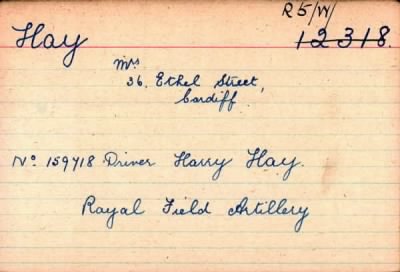 R5/W/
Hay 12318.
Mrs
36, Ethel Street,
Cardiff.
No 159718 Driver Harry Hay.
Royal Field Artillery